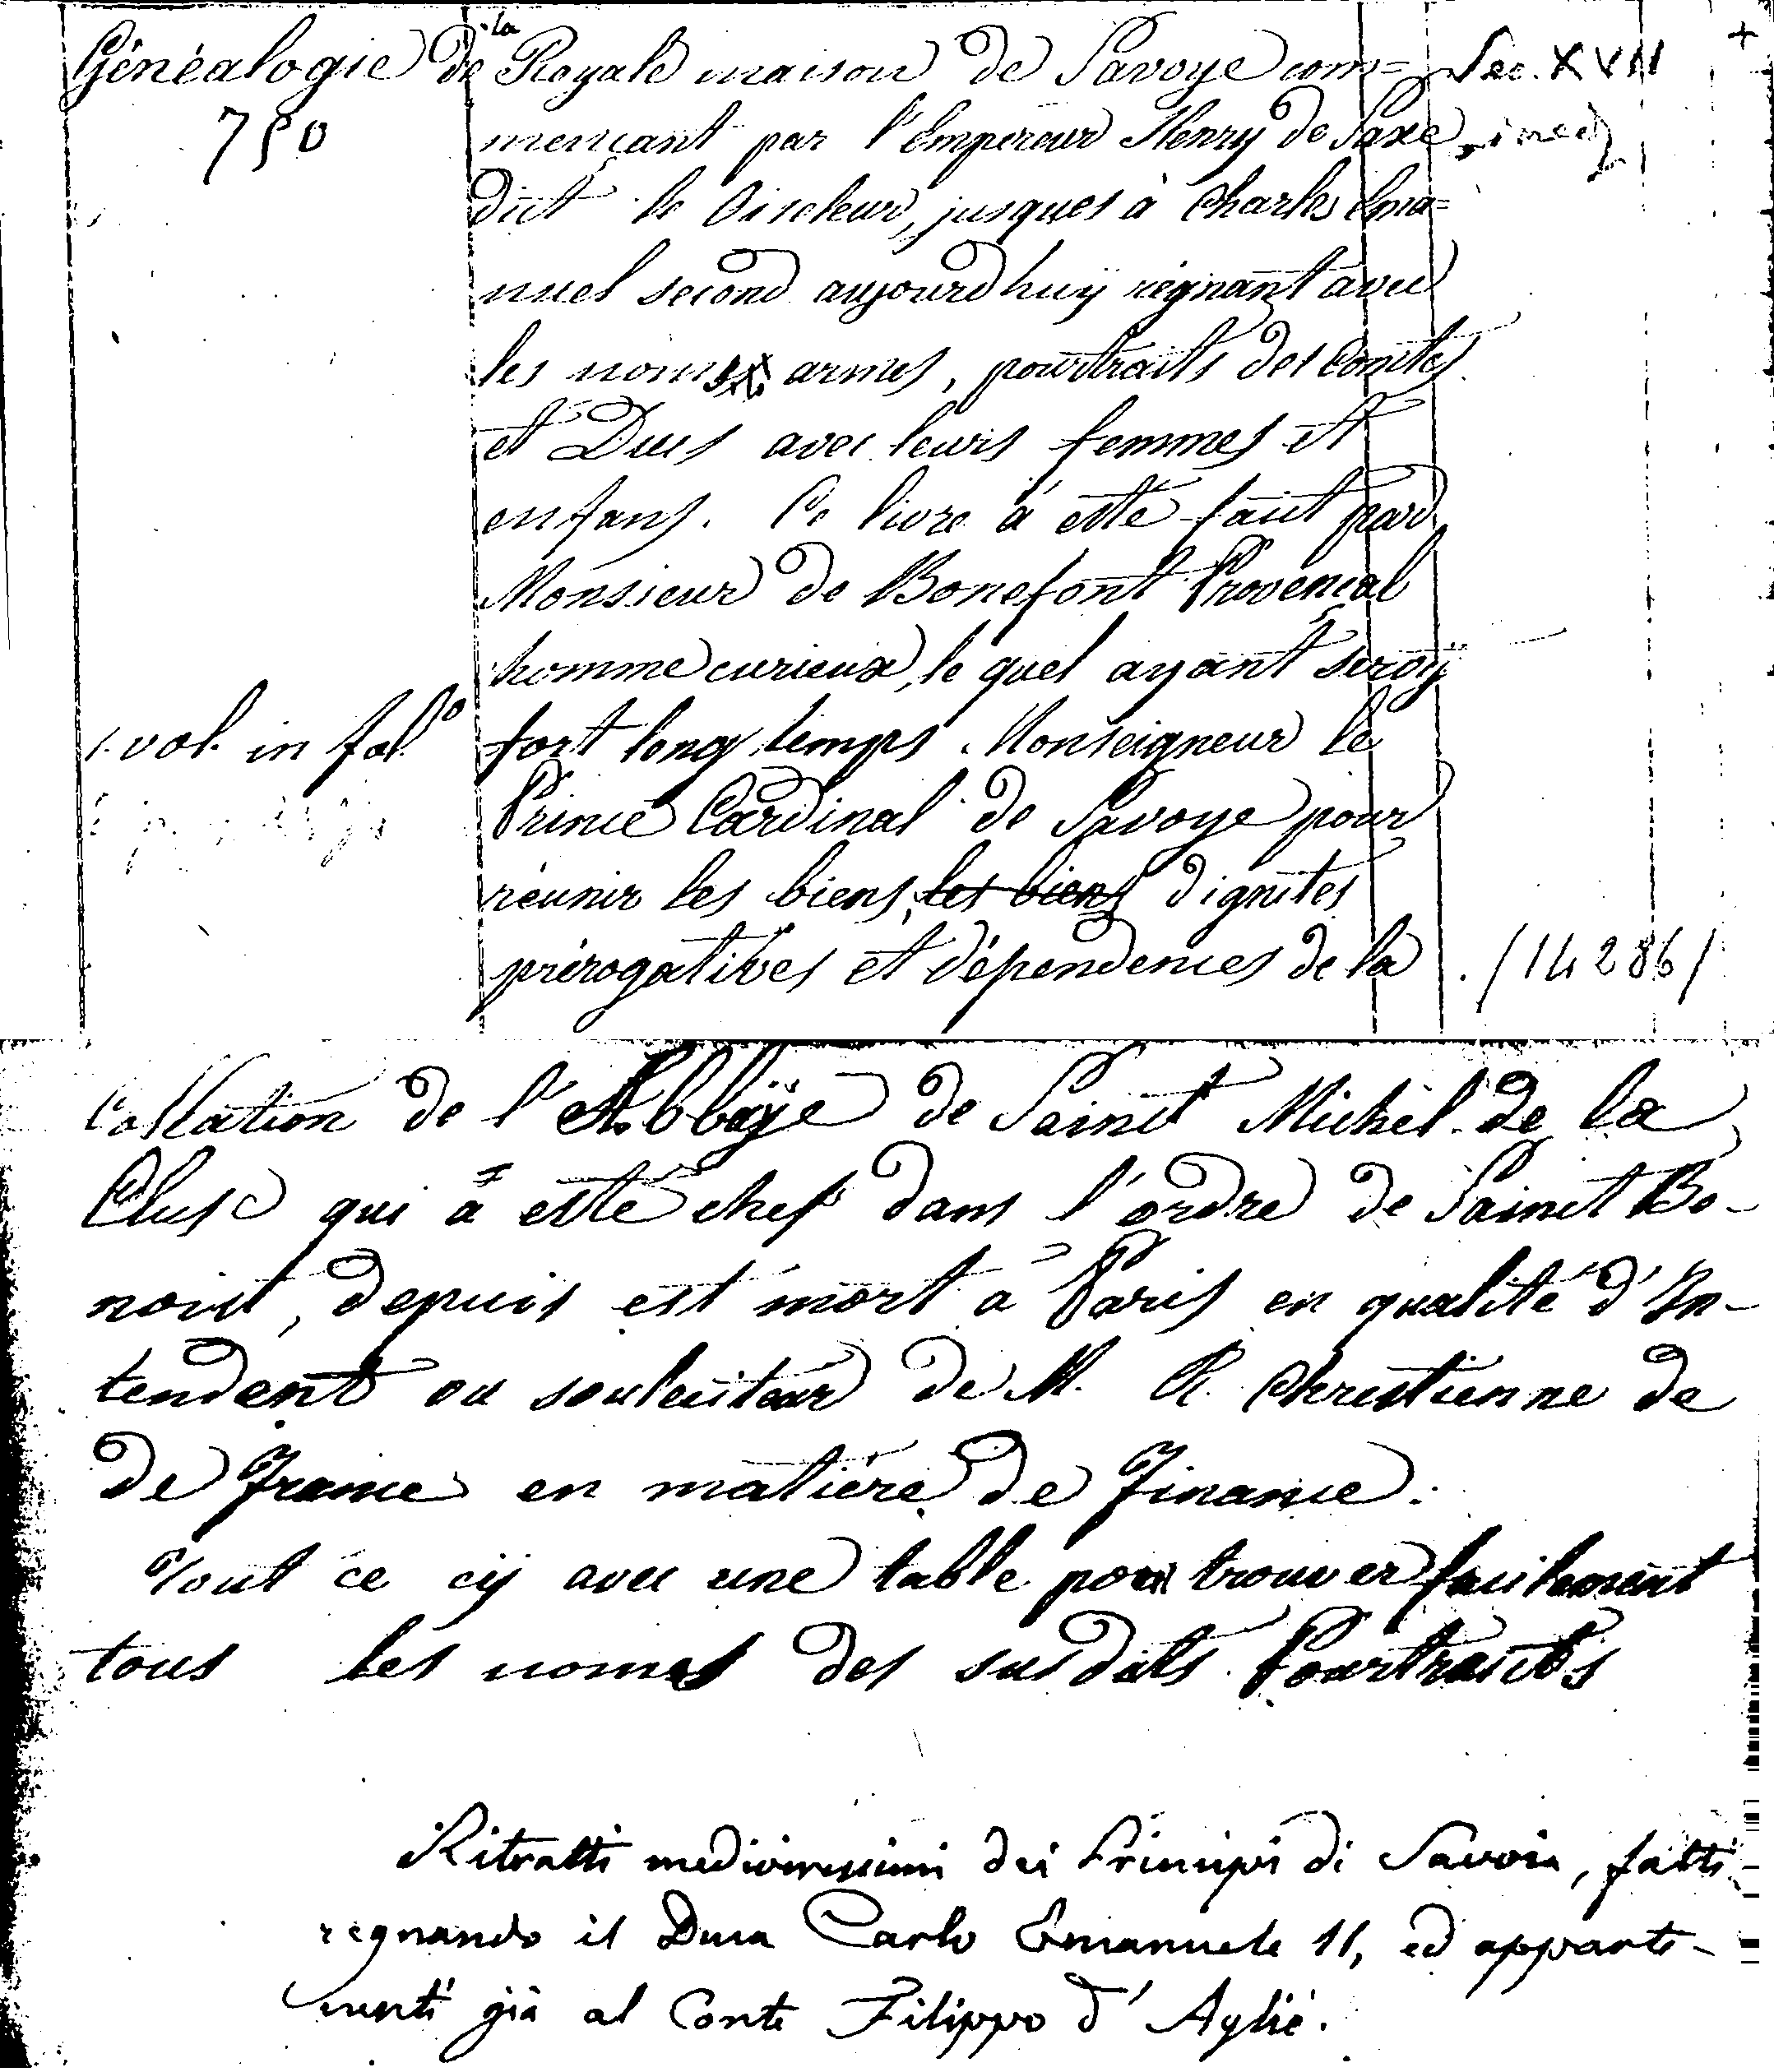 Généalogie de la Royale maison de Savoye com= Sec. XVII +
750 mençant par l'Empereur Henry de Saxe, ined
dict le Oiseleur, jusques à Charles Ema=
nuel second aujourd huy régnant avec
les noms armes, pourtraits des Comtes
et Ducs avec leurs femmes et
enfans. Ce livre a esté faict par
Monsieur de Bonefont Provençal
homme curieux, le quel ayant servy
1. vol. in fol.o fort long temps Monseigneur le
Prince Cardinal de Savoye pour
réunir les biens, les biens dignites
prérogatives et dépendences de la ./14286/
Collation de l'Abbaÿe de Sainct Michel de la
Cluse qui a esté chef dans l'ordre de Sainct Be-
noist, depuis est mort à Paris en qualité d'In-
tendent ou souliciteur de M. R. Chrestienne de
de France en matiére de Finance.
Tout ce cy avec une table pour trouver facilement
tous les noms des susdits Pourtraicts
Ritratti mediocrissimi dei Principi di Savoia, fatti
regnando il Duca Carlo Emanuele II, ed apparte-
nenti già al Conte Filippo d'Agliè.